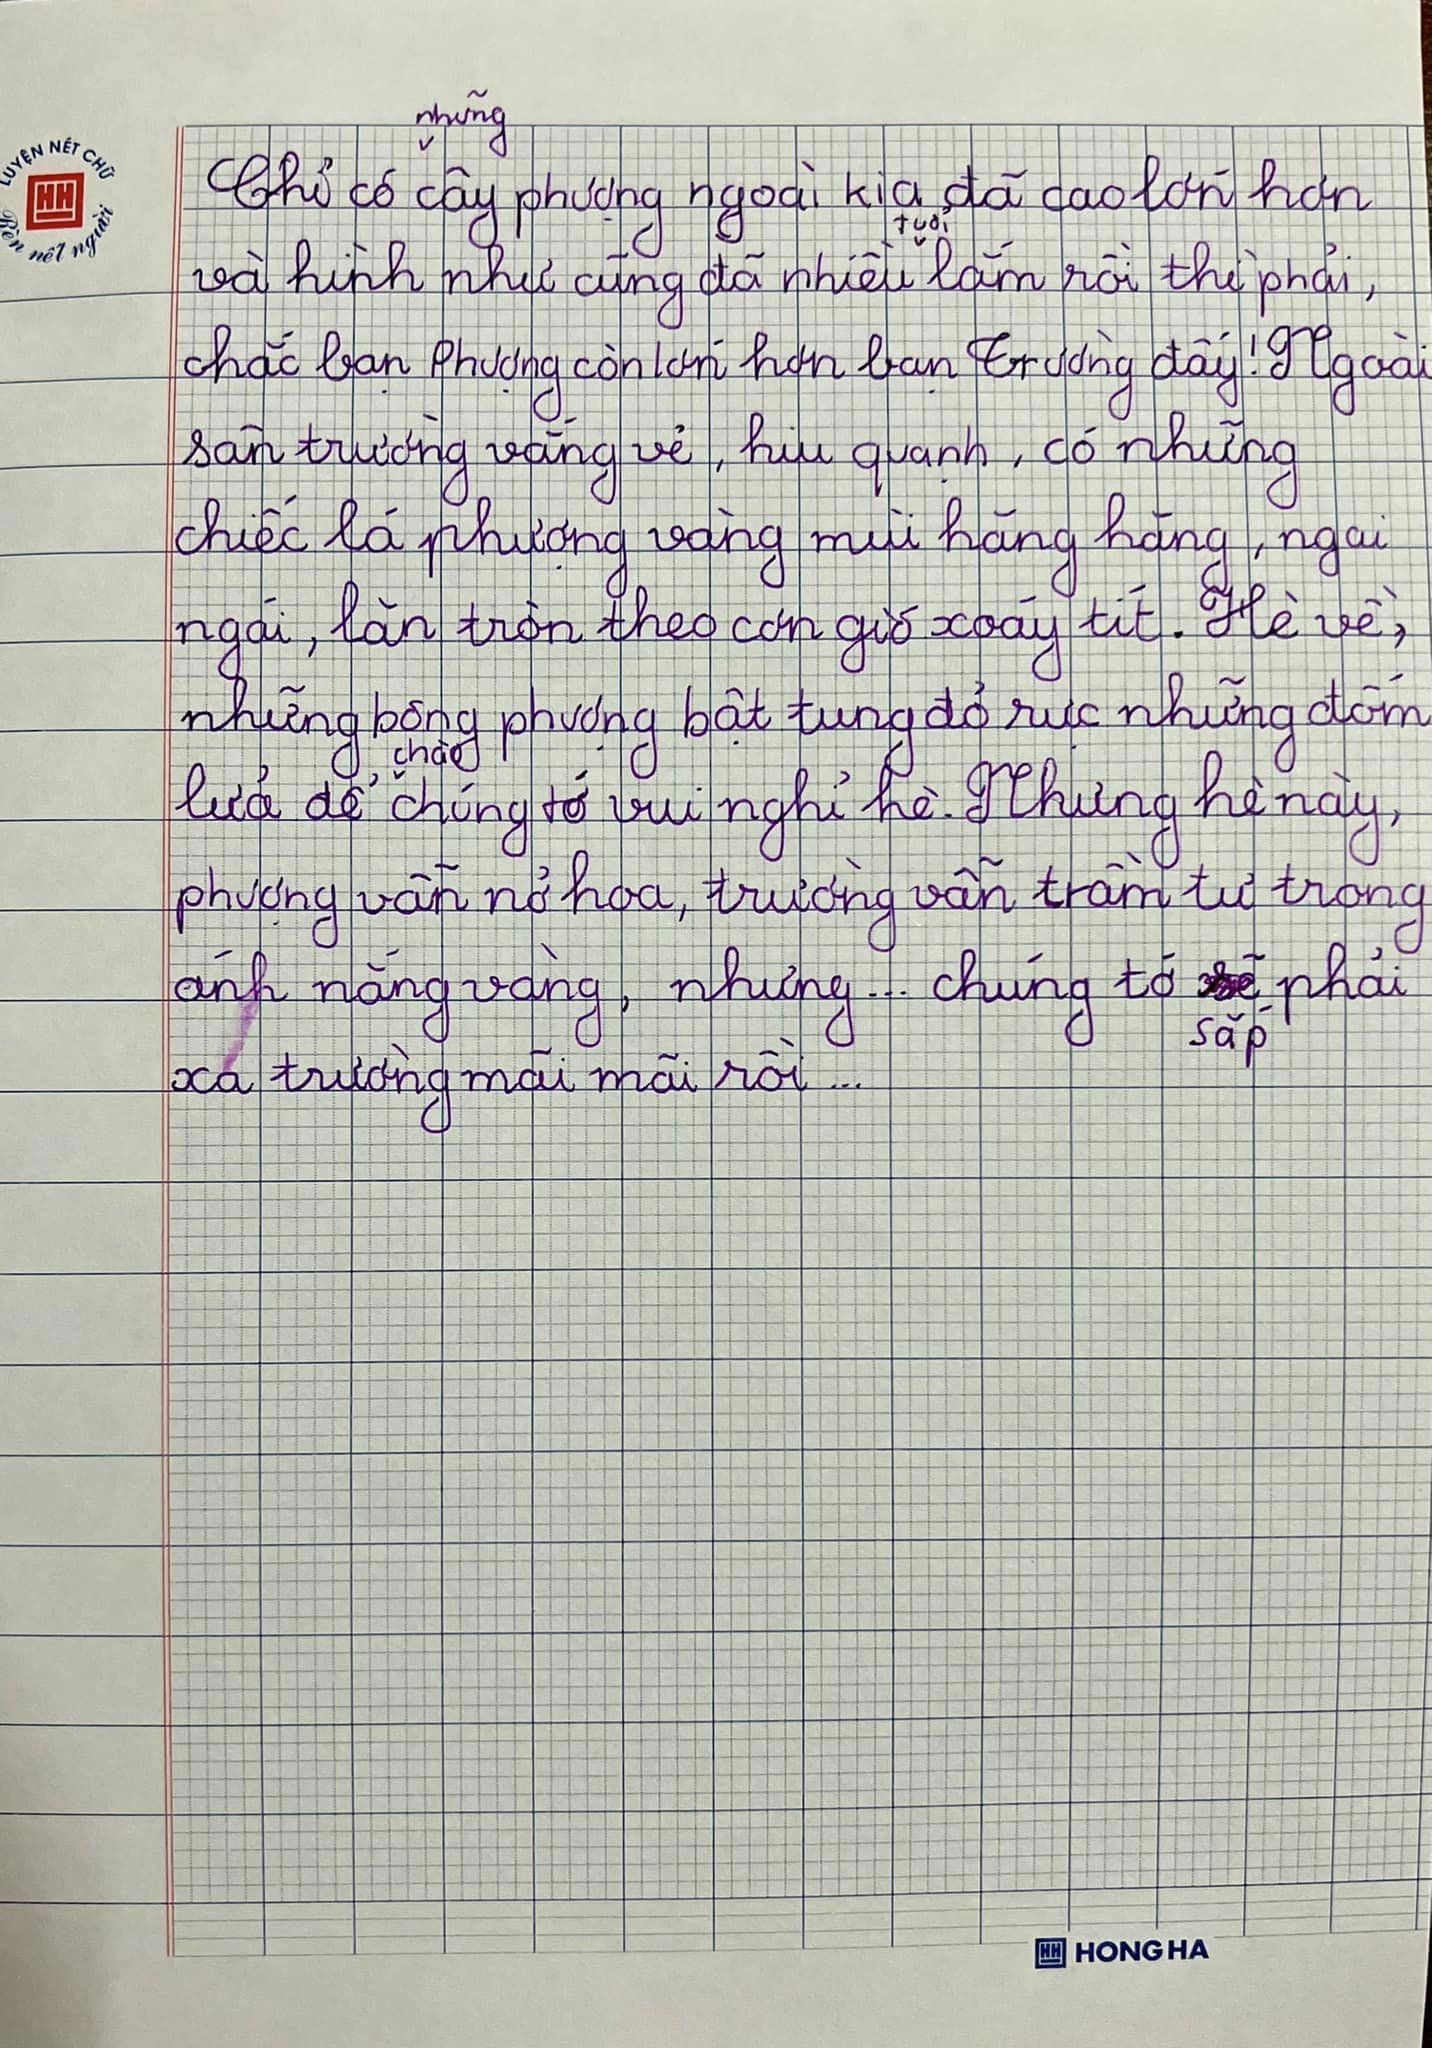 LUYỆN NÉT CHỮ
HH
Rèn nết người
những
Chỉ có cây phượng ngoài kia đã cao lớn hơn
tuổi
và hình như cũng đã nhiều lắm rồi thì phải,
chắc bạn Phượng còn lớn hơn bạn Trường đấy! Ngoài
sân trường vắng vẻ, hiu quạnh, có những
chiếc lá phượng vàng mùi hăng hăng, ngai
ngái, lăn tròn theo cơn gió xoáy tít. Hè về,
những bông phượng bật tung đỏ rực những đốm
chào
lửa để chúng tớ vui nghỉ hè. Nhưng hè này,
phượng vẫn nở hoa, trường vẫn trầm tư trong
ánh nắng vàng, nhưng... chúng tớ phải
sắp
xa trường mãi mãi rồi...
HH HONG HA